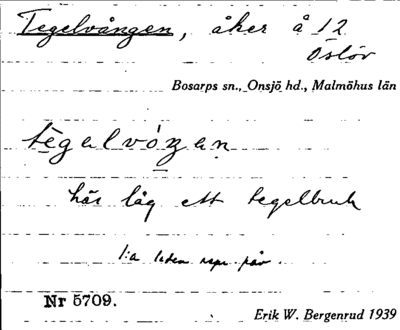 Tegelvången, åker å 12
Öslöv
Bosarps sn., Onsjö hd., Malmöhus län
tegalvóŋan
här låg ett tegelbruk
1:a leden
Nr 5709.
Erik W. Bergenrud 1939